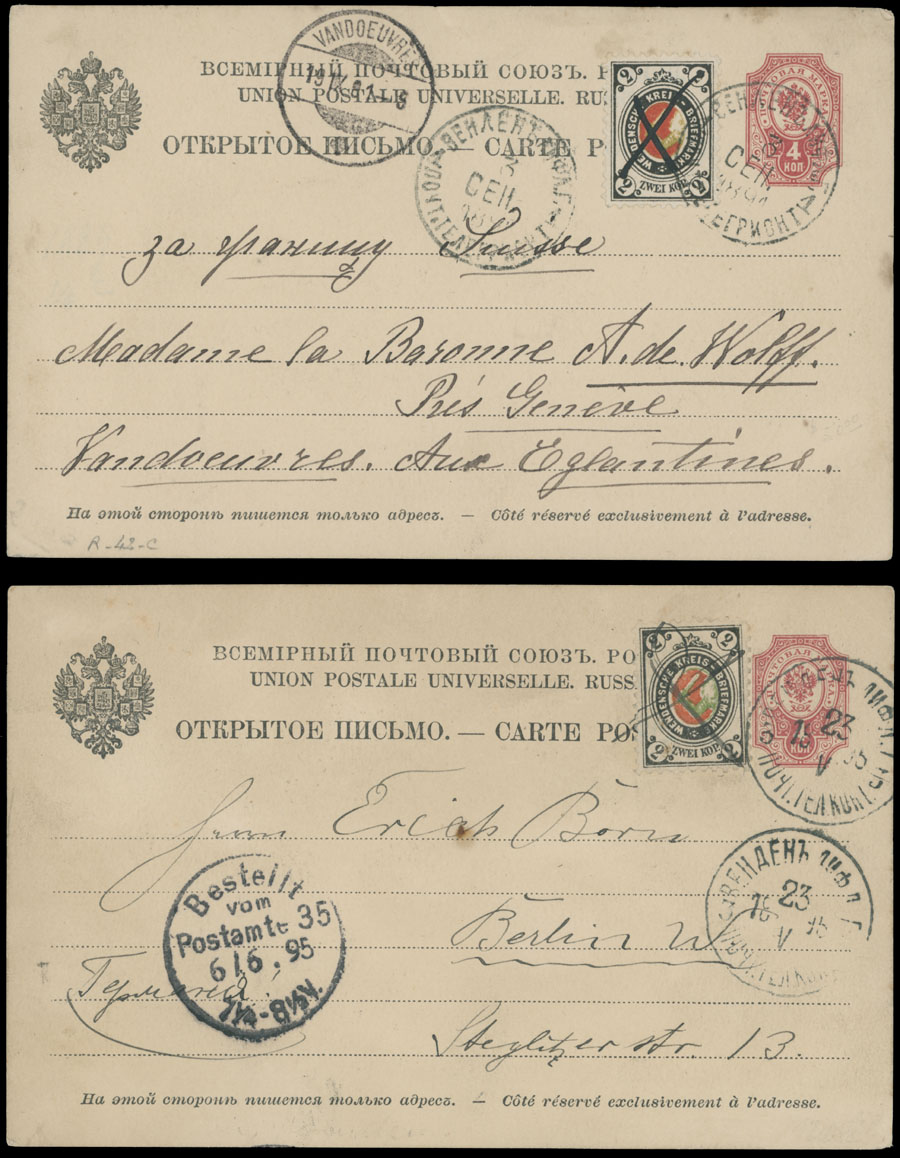 VANDOEUVRES
ВСЕМІРНЫЙ ПОЧТОВЫЙ СОЮЗЪ.
UNION POSTALE UNIVERSELLE. RUS
ОТКРЫТОЕ ПИСЬМО. — CARTE PO
2 2
WENDENSCHE KREIS-BRIEFMARKE
2 2
ZWEI KOP.
ПОЧТОВАЯ МАРКА
4
КОП
ВЕНДЕНЪ
3
СЕН
3
СЕН
за границу Suisse
Madame la Baronne A. de Wolff.
Près Genève
Vandoeuvres. Aux Eglantines.
На этой сторонѣ пишется только адресъ. — Côté réservé exclusivement à l'adresse.
R-42-C
ВСЕМІРНЫЙ ПОЧТОВЫЙ СОЮЗЪ. РО
UNION POSTALE UNIVERSELLE. RUSS
ОТКРЫТОЕ ПИСЬМО. — CARTE POS
2 2
WENDENSCHE KREIS-BRIEFMARKE
2 2
ZWEI KOP.
23
V
ПОЧТ.ТЕЛ.КОНТ.
Herrn Erich Born
ВЕНДЕНЪ ЛИФЛ. Г.
23
V
95
Bestellt
vom
Postamte 35
6/6.95
Berlin W
Германія!
Steglitzer str. 13.
На этой сторонѣ пишется только адресъ. — Côté réservé exclusivement à l'adresse.